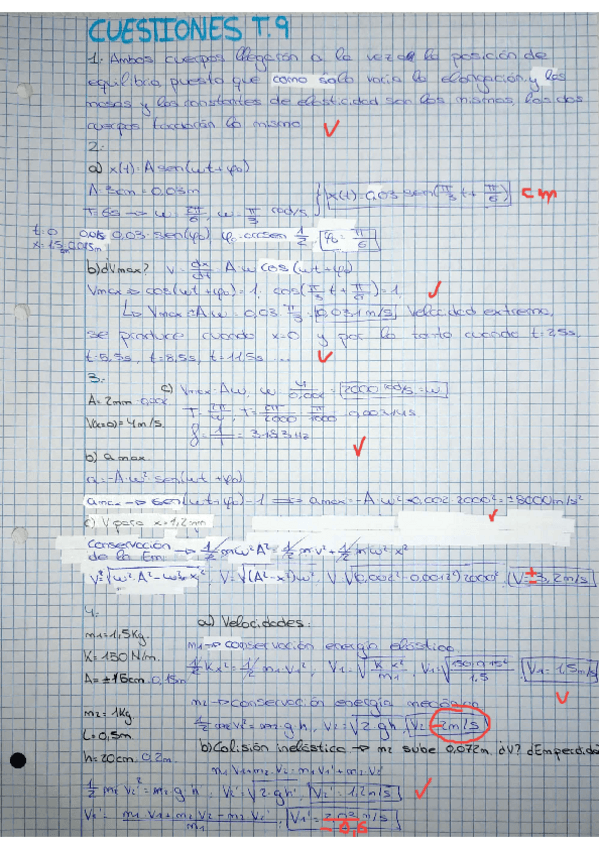 CUESTIONES T.9
1. Ambos cuerpos llegarán a la vez a la posición de
equilibrio puesto que como sólo varía la elongación y las
masas y las constantes de elasticidad son las mismas, los dos
cuerpos tardarán lo mismo ✓
2.
a) x(t) = A sen(ωt + φ₀)
A = 3cm = 0,03m
T = 6s → ω = 2π/6, ω = π/3 rad/s } x(t) = 0,03 sen(π/3 t + π/6) cm
t=0 0,015 = 0,03 · sen(φ₀), φ₀ = arcsen 1/2, φ₀ = π/6
x=1,5cm 0,015m
b) ¿Vmax? v = dx/dt = A·ω cos(ωt + φ₀)
Vmax → cos(ωt + φ₀) = 1, cos(π/3 t + π/6) = 1 ✓
↳ Vmax = Aω = 0,03 · π/3 = 0,031 m/s Velocidad extrema
se produce cuando x=0 y por lo tanto cuando t=2,5s,
t=5,5s, t=8,5s, t=11,5s ... ✓
3.
A= 2mm = 0,002
V(x=0) = 4m/s
a) Vmax = Aω, ω = 4/0,002 = 2000 rad/s = ω
T = 2π/ω, T = 2π/2000 = π/1000
f = 1/T ✓
b) amax
a = -Aω² sen(ωt + φ₀)
amax → sen(ωt + φ₀) = 1 ⟹ amax = -A·ω² = 0,002·2000² = ±8000m/s² ✓
c) V para x=1,2mm
Conservación
de la Em → 1/2 mω²A² = 1/2 mv² + 1/2 mω²x²
V = √(ω²A² - ω²x²), V = √((A²-x²)ω²), V = √((0,002² - 0,0012²)2000²), V = ± 3,2m/s
4.
m₁=1,5Kg
K=150 N/m
A= ±15cm 0,15m
m₂= 1Kg
L=0,5m
h=20cm 0,2m
a) Velocidades:
m₁ → conservación energía elástica
1/2 Kx² = 1/2 m₁v₁², V₁ = √(K·x²/m₁), V₁ = √(150·0,15²/1,5), V₁ = 1,5m/s ✓
m₂ → conservación energía mecánica
1/2 m₂v₂² = m₂gh, v₂ = √(2gh), V₂ = -2m/s
b) Colisión inelástica → m₂ sube 0,072m ¿V? ¿Emperdida
m₁V₁ + m₂V₂ = m₁V₁' + m₂V₂'
1/2 m₂V₂'² = m₂gh', V₂' = √(2gh'), V₂' = 1,2m/s ✓
V₁' = (m₁V₁ + m₂V₂ - m₂V₂')/m₁, V₁' = m/s
- 0,6